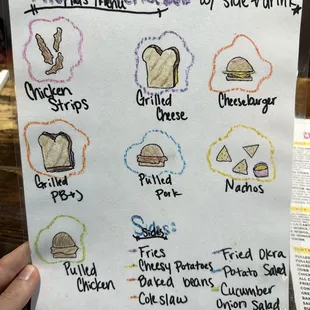 Kids Menu w/ side + drink
Chicken Strips
Grilled Cheese
Cheeseburger
Grilled PB+J
Pulled Pork
Nachos
Pulled Chicken
Sides:
Fries
Cheesy Potatoes
Baked beans
Coleslaw
Fried Okra
Potato Salad
Cucumber
Onion Salad